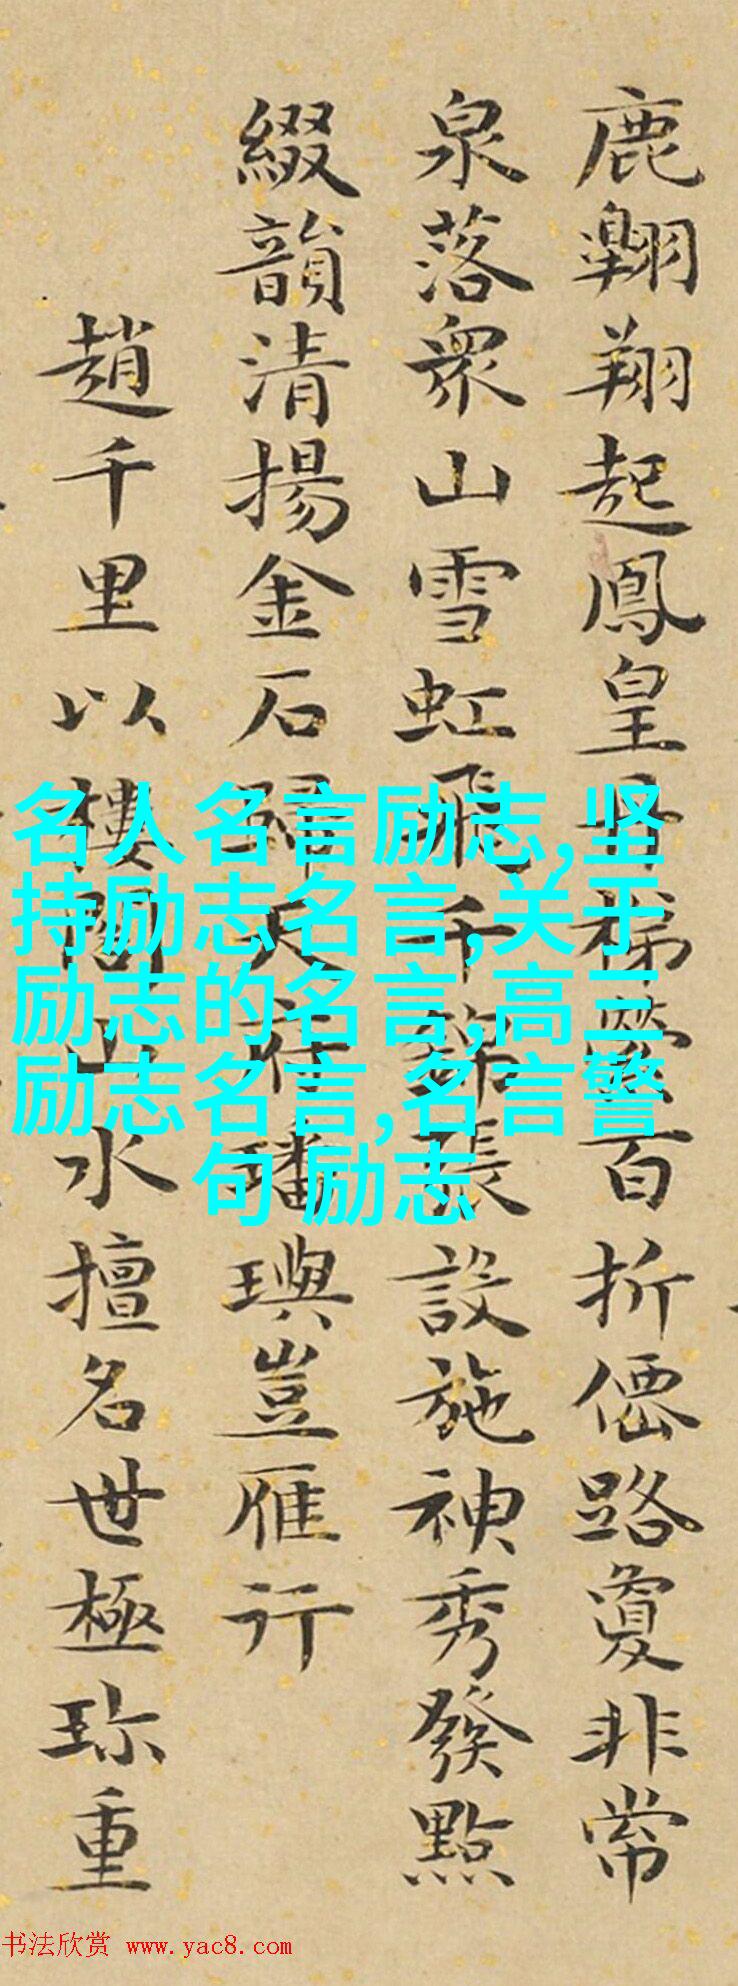 鹿翺翔起鳳皇丹梯縈百折僊路敻非常
泉落衆山雪虹飛千錦張設施神秀發點
綴韻清揚金石歸天府璠璵豈雁行
趙千里以樓閣山水擅名世極珎重
名人名言励志,坚
持励志名言,关于
励志的名言,高三
励志名言,名言警
句 励志
书法欣赏 www.yac8.com